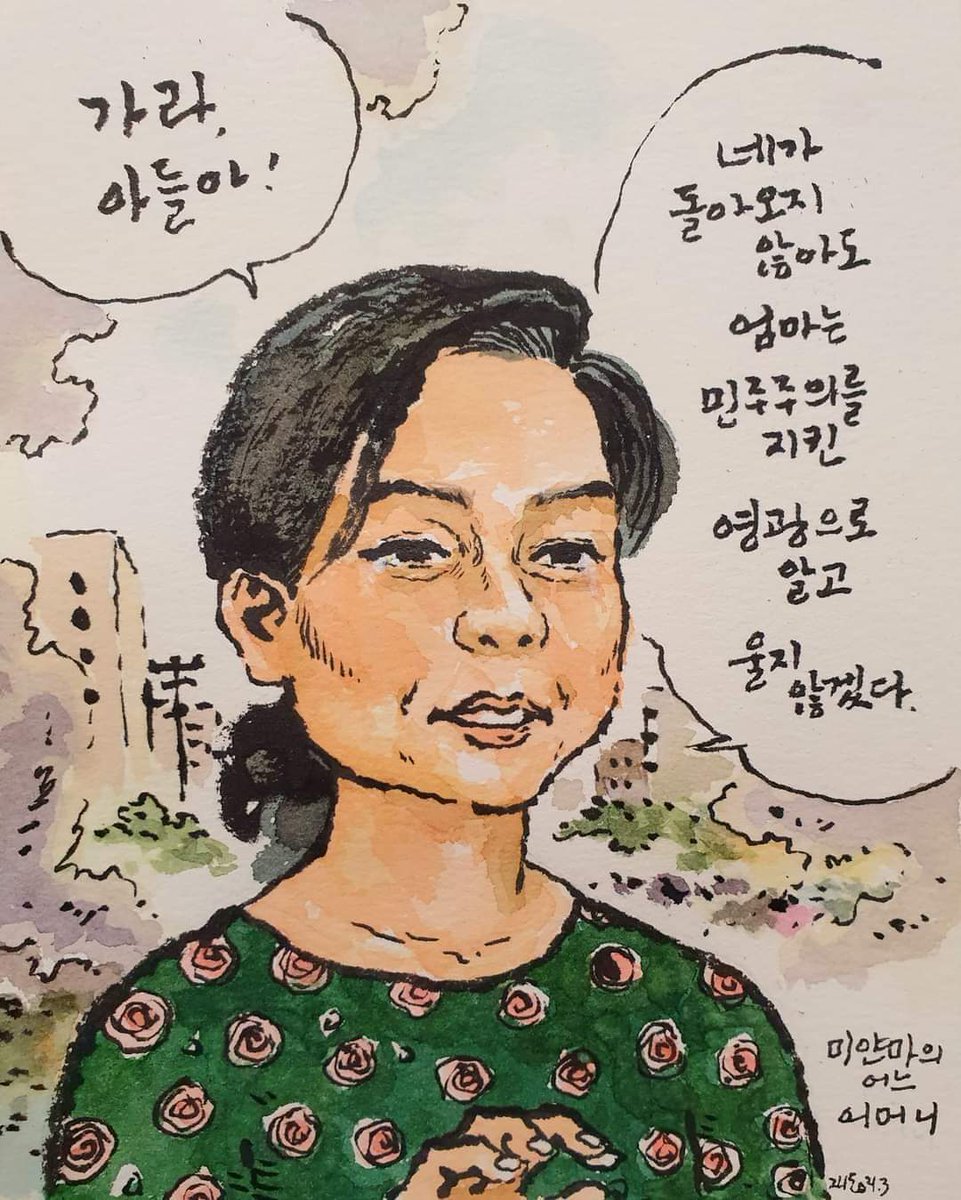 가라,
아들아!
네가
돌아오지
않아도
엄마는
민주주의를
지킨
영광으로
알고
울지
않겠다.
미얀마의
어느
어머니